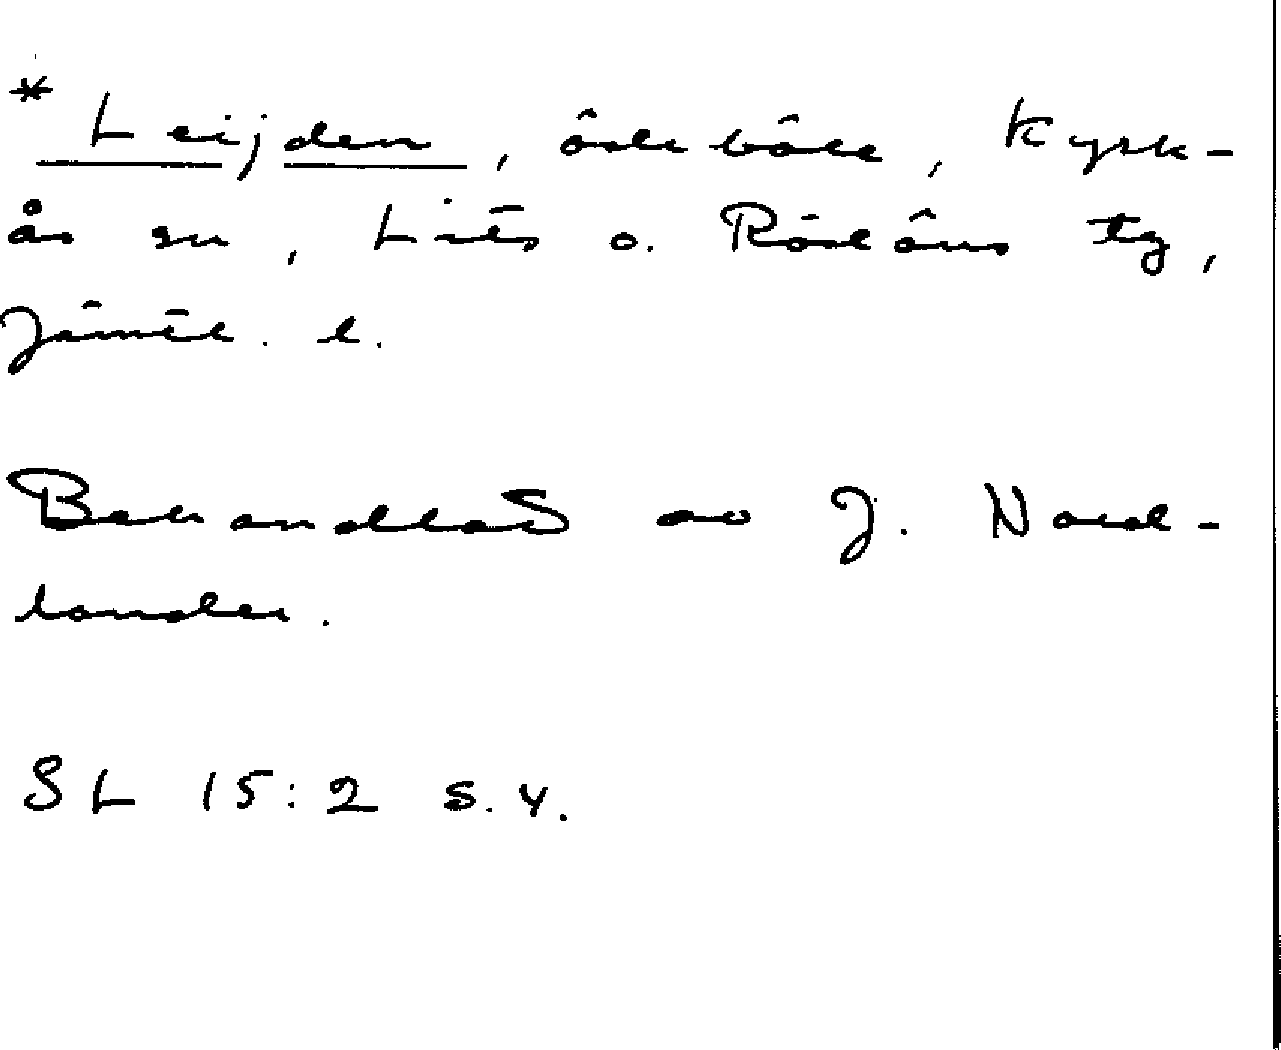 * Leijden, ödeböle, Kyrk-
ås sn, Lits o. Rödöns tg,
Jämtl. l.
Behandlat av J. Nord-
lander.
SL 15:2 s. 4.